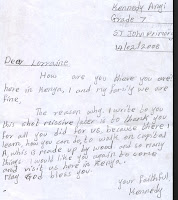 Kennedy
Grade 7
ST John Primary
14/02/2008
Dear Lorraine
How are you there you are
here in Kenya, I and my family we are
fine.
The reason why I write to you
this is to thank you
for all you did for us, because there I
learn, how you can do to walk on
A which is made up by wood and so many
things I would like you would to come
and visit us here in Kenya.
May God bless you
your Faithful
Kennedy